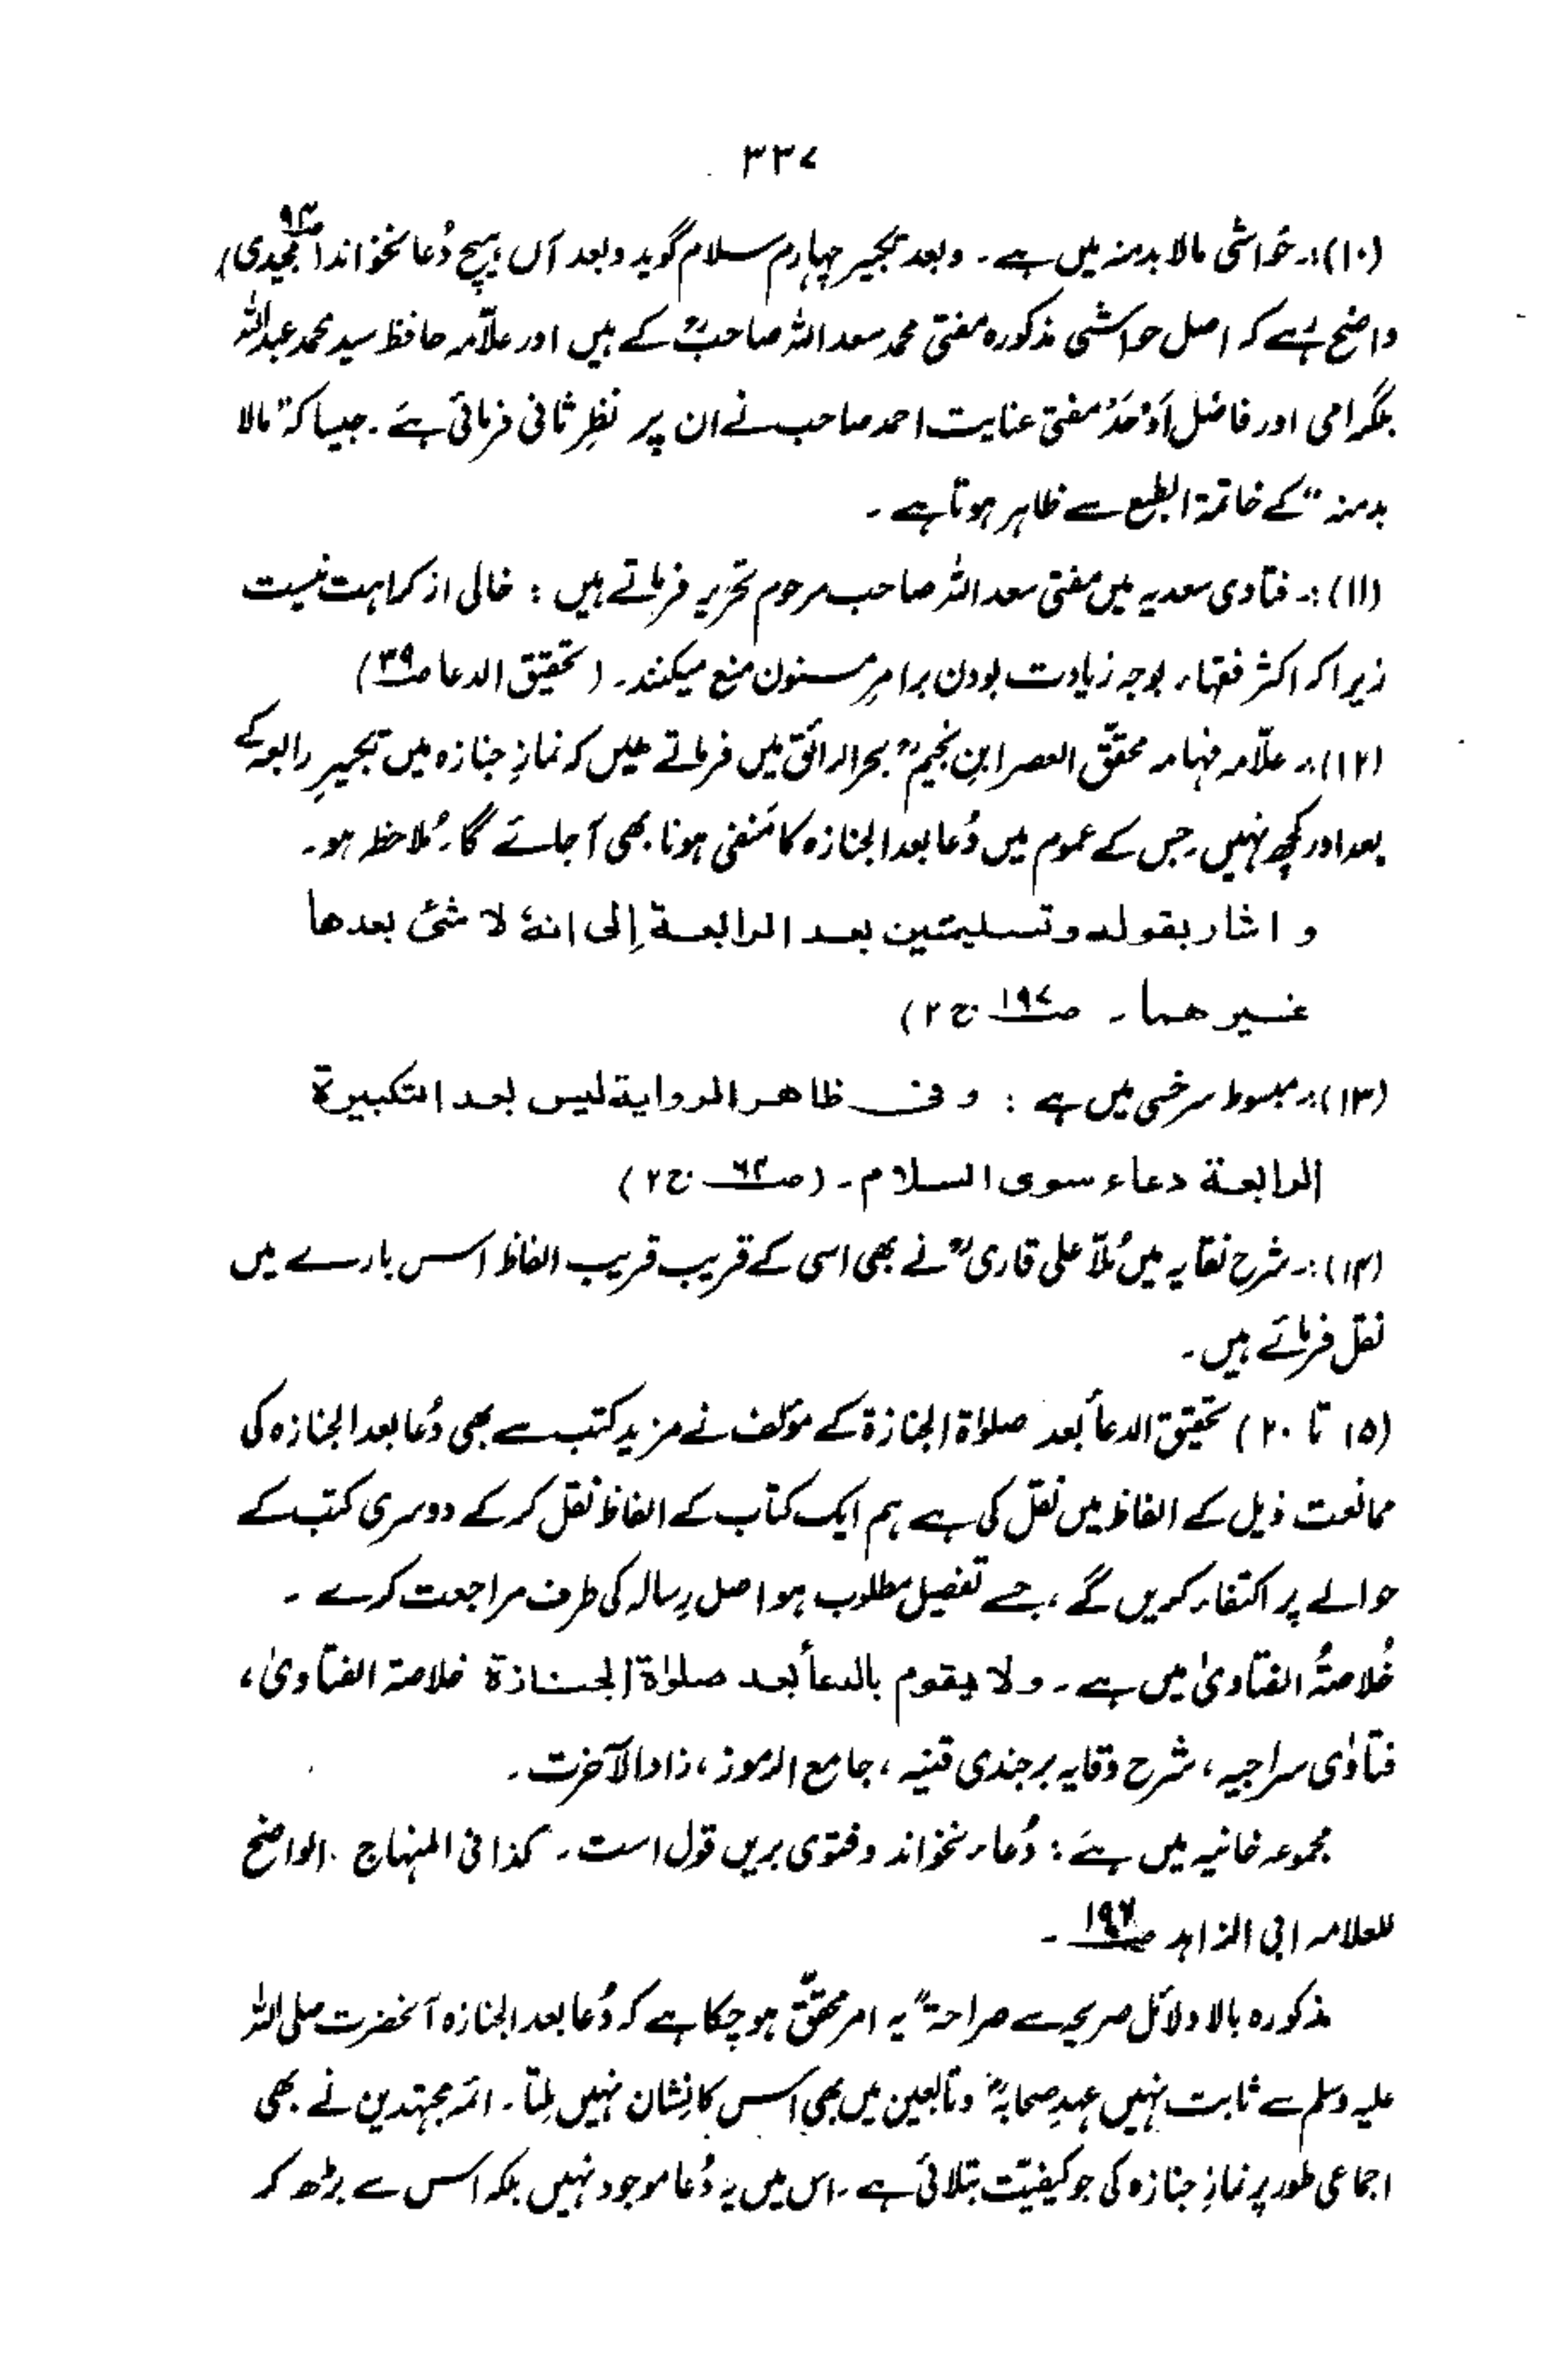 ۳۳۷
(۱۰)؛۔ حواشی مالا بدمنہ میں ہے ۔ وبعد تکبیر چہارم سلام گوید وبعد آں ہیچ دُعا نخواند (مجیدی ص۹۳)
واضح رہے کہ اصل حواشی مذکورہ مفتی محمد سعد اللہ صاحبؒ کے ہیں اور علاّمہ حافظ سید محمد عبداللہ
بلگرامی اور فاضل اَوْحَدْ مفتی عنایت احمد صاحب نے ان پر نظرِ ثانی فرمائی ہے ۔ جیسا کہ "مالا
بدمنہ" کے خاتمۃ الطبع سے ظاہر ہوتا ہے ۔
(۱۱)؛۔ فتاوی سعدیہ میں مفتی سعد اللہ صاحب مرحوم تحریر فرماتے ہیں : خالی از کراہت نیست
زیرا کہ اکثر فقہاء بوجہ زیادت بودن بر امرِ مسنون منع میکنند ۔ (تحقیق الدعا ص۳۹)
(۱۲)؛۔ علاّمہ فہامہ محقّق العصر ابن نجیمؒ بحرالرائق میں فرماتے ہیں کہ نمازِ جنازہ میں تکبیرِ رابعہ کے
بعد اور کچھ نہیں ۔ جس کے عموم میں دُعا بعد الجنازہ کا مَنفی ہونا بھی آ جائے گا ۔ مُلاحظہ ہو ۔
و اشار بقولہ وتسلیمتین بعد الرابعۃ اِلی انہٗ لا شیٔ بعدھا
غیرھما ۔ ص۱۹۷ ج ۲)
(۱۳)؛۔ مبسوط سرخسی میں ہے : وفی ظاھر الروایۃ لیس بعد التکبیرۃ
الرابعۃ دعاء سوی السلام ۔ (ص۶۴ ج ۲)
(۱۴)؛۔ شرح نقایہ میں مُلاّ علی قاریؒ نے بھی اسی کے قریب قریب الفاظ اس بارے میں
نقل فرمائے ہیں ۔
(۱۵ تا ۲۰) تحقیق الدعأ بعد صلوٰۃ الجنازۃ کے مؤلف نے مزید کتب سے بھی دُعا بعد الجنازہ کی
ممانعت ذیل کے الفاظ میں نقل کی ہے ہم ایک کتاب کے الفاظ نقل کر کے دوسری کتب کے
حوالے پر اکتفاء کریں گے ، جسے تفصیل مطلوب ہو اصل رسالہ کی طرف مراجعت کرے ۔
خُلاصۃُ الفتاویٰ میں ہے ۔ ولا یقوم بالدعأ بعد صلوٰۃ الجنازۃ خلاصۃ الفتاویٰ ،
فتاوٰی سراجیہ ، شرح وقایہ برجندی قنیہ ، جامع الرموز ، زادالآخرت ۔
مجموعہ خانیہ میں ہے : دُعاء نخواند وفتوی بریں قول است ۔ کذا فی المنہاج ۔ الواضح
للعلامہ ابی الزاہد ص۱۹۷ ۔
مذکورہ بالا دلائل صریحہ سے صراحۃً یہ امر محقّق ہو چکا ہے کہ دُعا بعد الجنازہ آنحضرت صلی اللہ
علیہ وسلم سے ثابت نہیں عہدِ صحابہؓ وتابعین میں بھی اس کا نِشان نہیں مِلتا ۔ ائمہ مجتہدین نے بھی
اجماعی طور پر نمازِ جنازہ کی جو کیفیّت بتلائی ہے ۔ اس میں یہ دُعا موجود نہیں بلکہ اس سے بڑھ کر